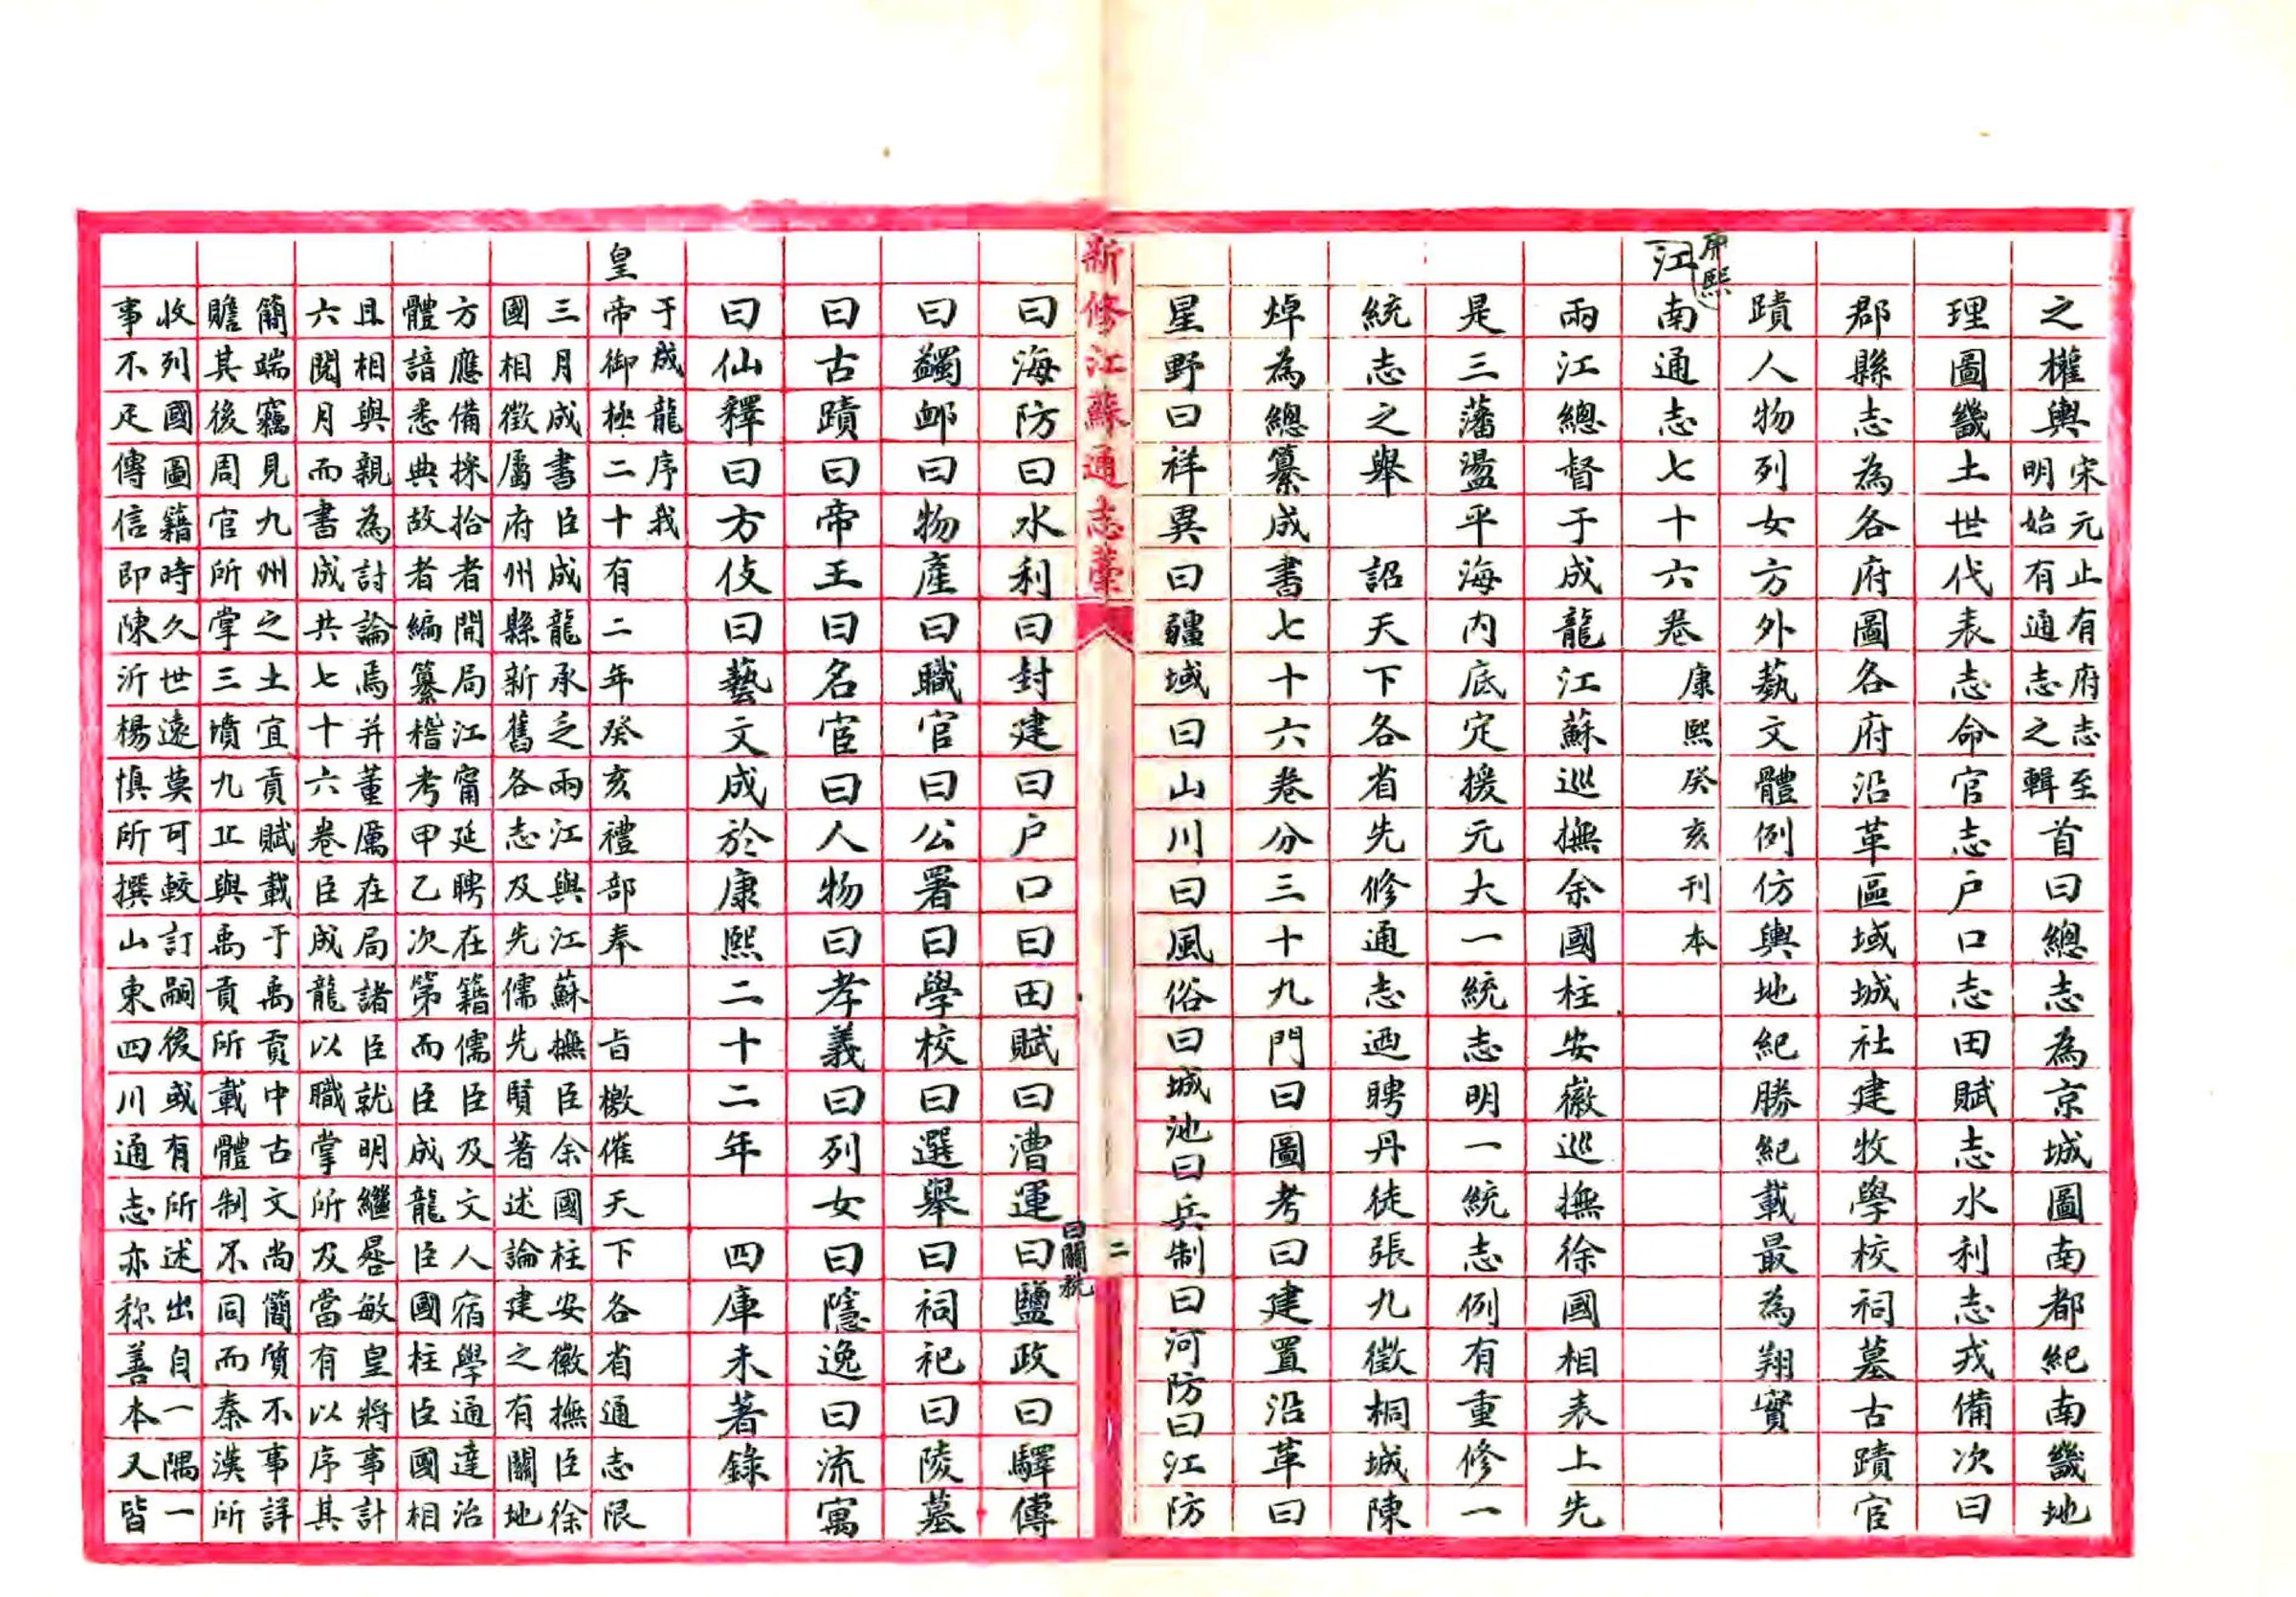 之權輿宋元止有府志至明始有通志之輯首曰總志為京城圖南都紀南畿地
理圖畿土世代表志命官志戶口志田賦志水利志戎備次曰
郡縣志為各府圖各府沿革區域城社建牧學校祠墓古蹟官
蹟人物列女方外藝文體例仿輿地紀勝紀載最為翔實
康熙
江南通志七十六卷 康熙癸亥刊本
兩江總督于成龍江蘇巡撫余國柱安徽巡撫徐國相表上先
是三藩盪平海內底定援元大一統志明一統志例有重修一
統志之舉 詔天下各省先修通志迺聘丹徒張九徵桐城陳
焯為總纂成書七十六卷分三十九門曰圖考曰建置沿革曰
星野曰祥異曰疆域曰山川曰風俗曰城池曰兵制曰河防曰江防
新修江蘇通志藁 二
曰海防曰水利曰封建曰戶口曰田賦曰漕運曰關稅曰鹽政曰驛傳
曰蠲卹曰物產曰職官曰公署曰學校曰選舉曰祠祀曰陵墓
曰古蹟曰帝王曰名宦曰人物曰孝義曰列女曰隱逸曰流寓
曰仙釋曰方伎曰藝文成於康熙二十二年 四庫未著錄
于成龍序我
皇帝御極二十有二年癸亥禮部奉 旨檄催天下各省通志限
三月成書臣成龍承乏兩江與江蘇撫臣余國柱安徽撫臣徐
國相徵屬府州縣新舊各志及先儒先賢著述論建之有關地
方應備採拾者開局江甯延聘在籍儒臣及文人宿學通達治
體諳悉典故者編纂稽考甲乙次第而臣成龍臣國柱臣國相
且相與親為討論焉并董厲在局諸臣就明繼晷敏皇將事計
六閱月而書成共七十六卷臣成龍以職掌所及當有以序其
簡端竊見九州之土宜貢賦載于禹貢中古文尚簡質不事詳
贍其後周官所掌三墳九丘與禹貢所載體制不同而秦漢所
收列國圖籍時久世遠莫可較訂嗣後或有所述出自一隅一
事不足傳信即陳沂楊慎所撰山東四川通志亦称善本又皆